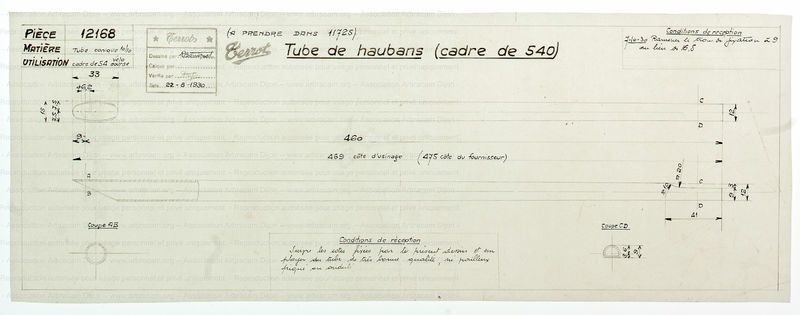 PIÈCE 12168
MATIÈRE Tube conique
UTILISATION cadre de 54 vélo course
Terrot
Dessiné par
Calqué par
Vérifié par
Date 22-8-1930
(A PRENDRE DANS 11725)
Terrot
Tube de haubans (cadre de 540)
Conditions de réception
Ramener le trou de fixation à 9
au lieu de 8,5
33
15
12
460
469 côte d'usinage (475 côte du fournisseur)
A
B
C
D
C
D
12
41
Coupe AB
Coupe CD
Conditions de réception
Suivre les cotes fixées par le présent dessin et em
ployer du tube de très bonne qualité, ni pailleux